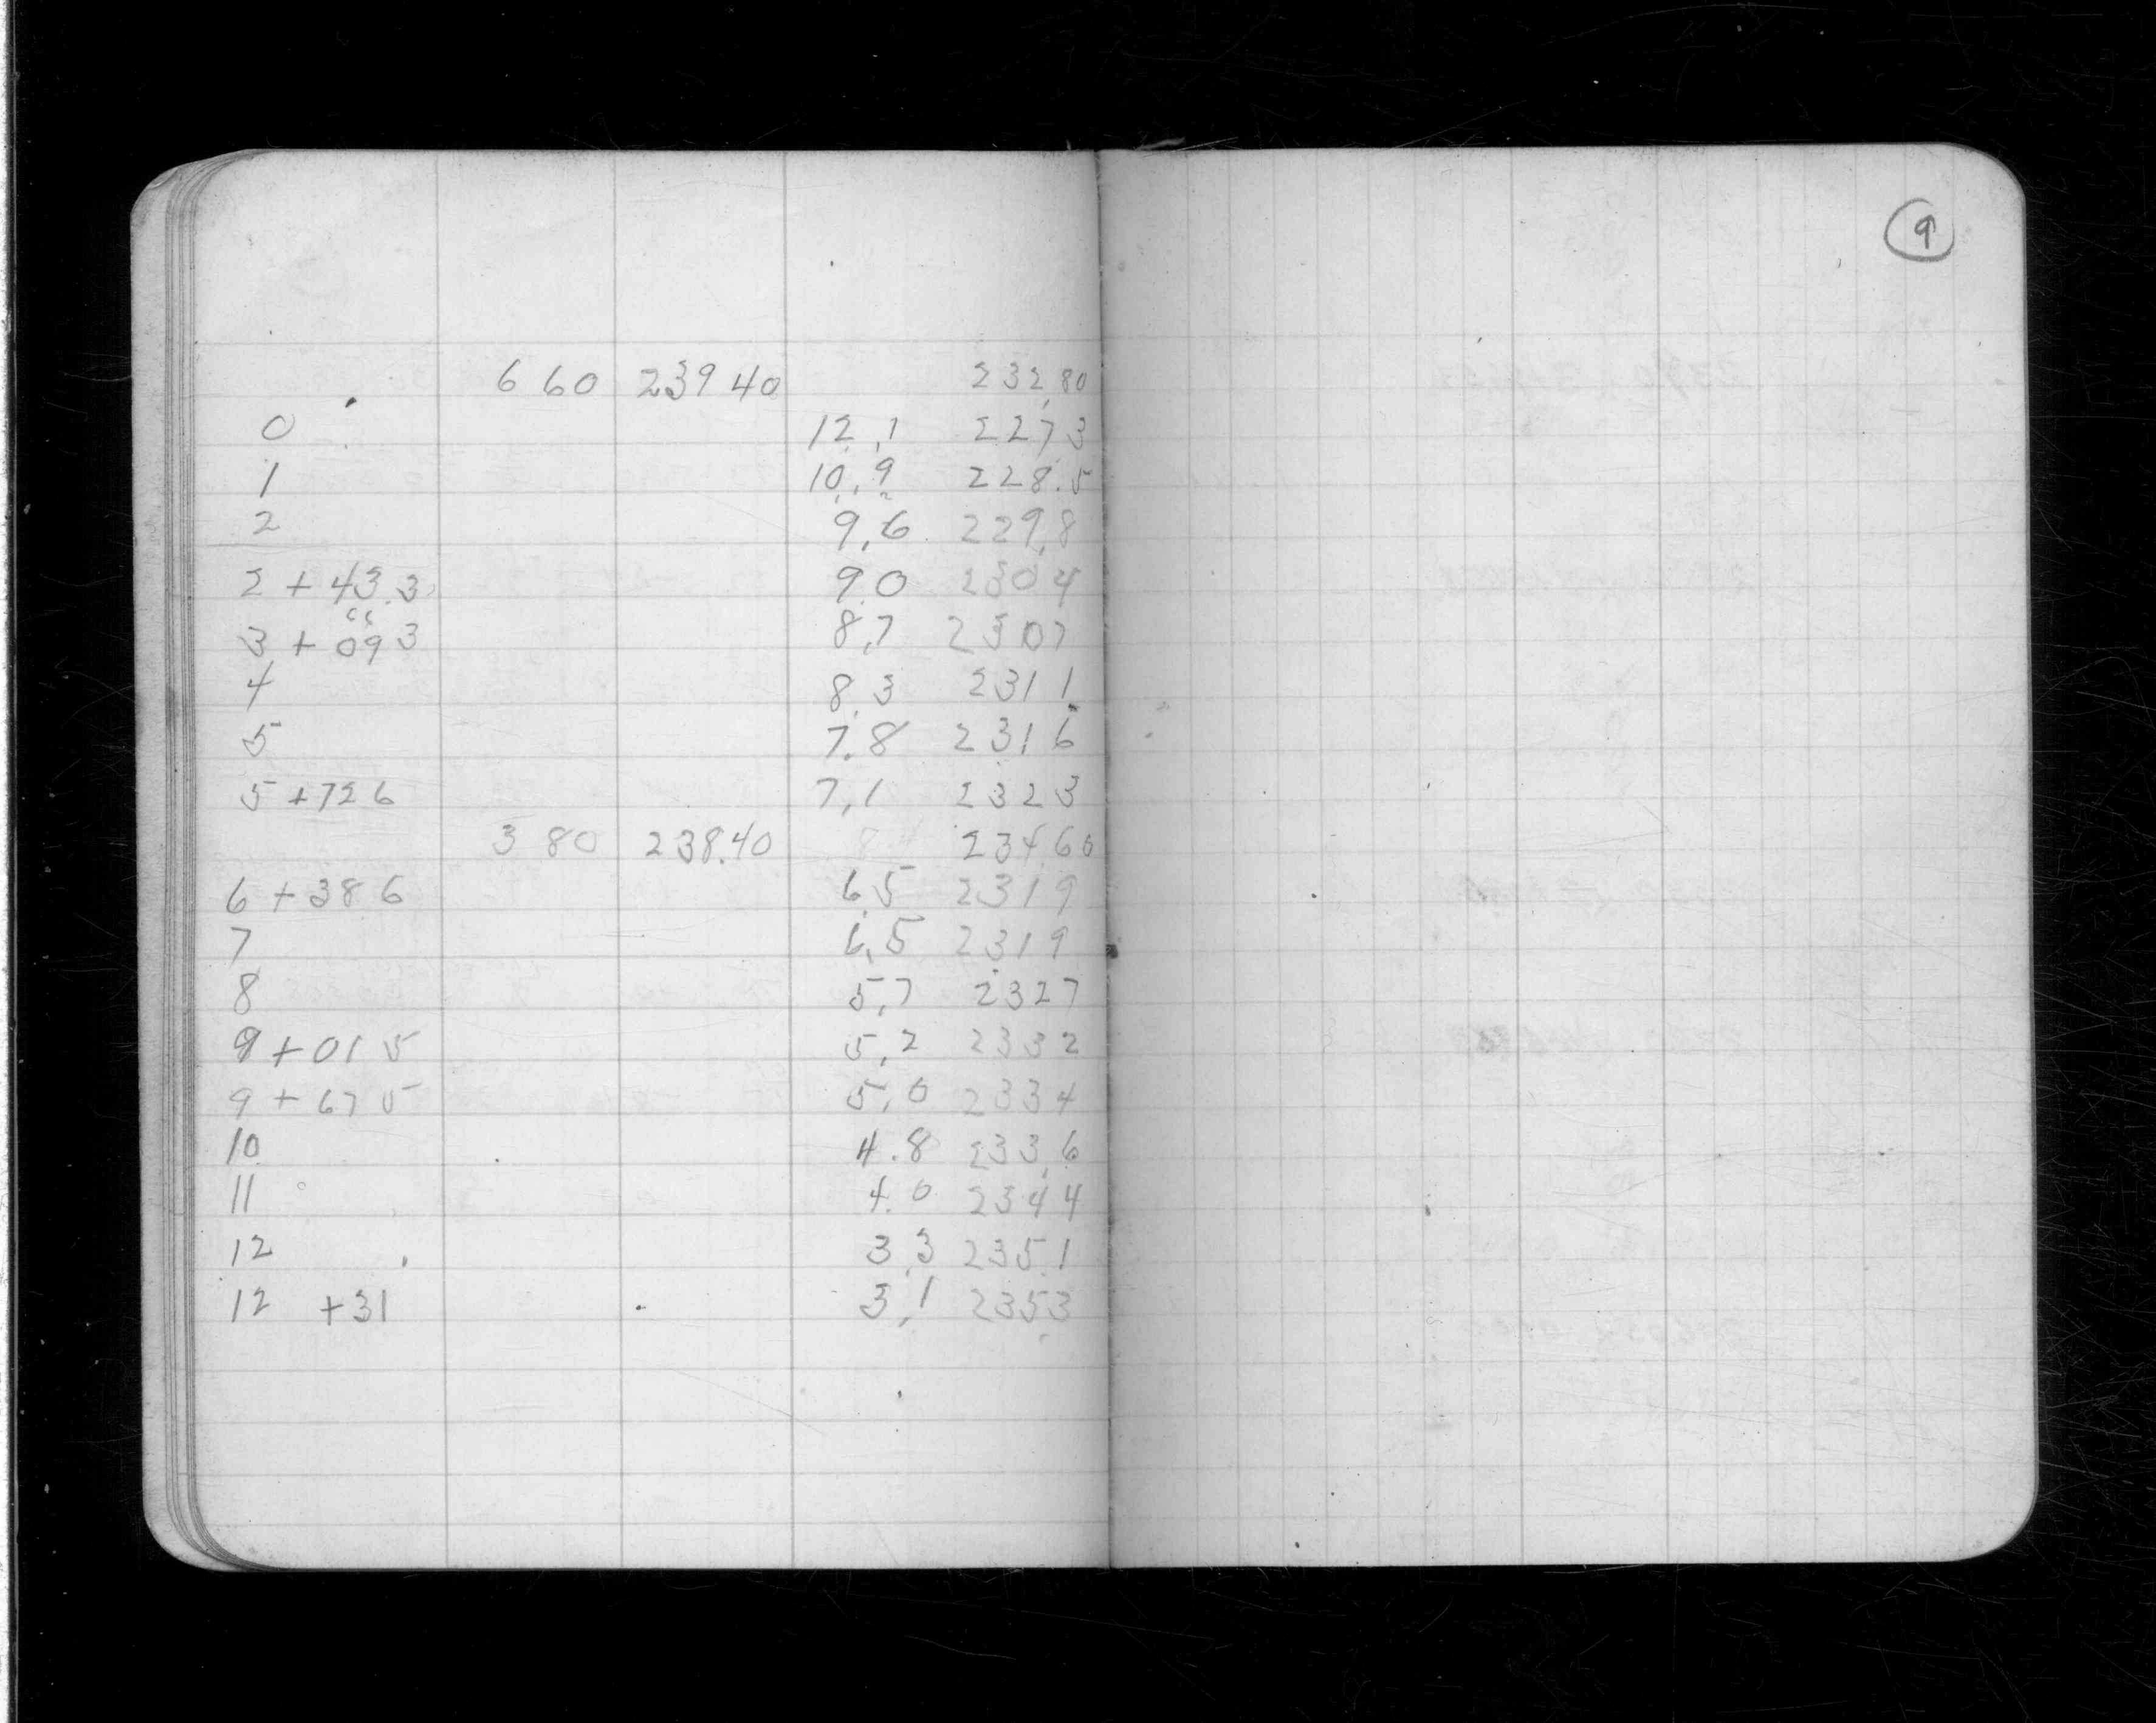 6 60 239 40 232,80
0 12,1 227,3
1 10,9 228.5
2 9,6 229,8
2 + 43.3 9.0 230 4
3 + 09 3 8,7 2307
4 8,3 231 1
5 7.8 231 6
5 + 72 6 7,1 232 3
3 80 238.40 234.60
6 + 38 6 6,5 231 9
7 6,5 231 9
8 5,7 232 7
9 + 01 5 5,2 233 2
9 + 67 5 5,0 233 4
10 4.8 233,6
11 4.0 234 4
12 3,3 235.1
12 +31 3,1 2353
9